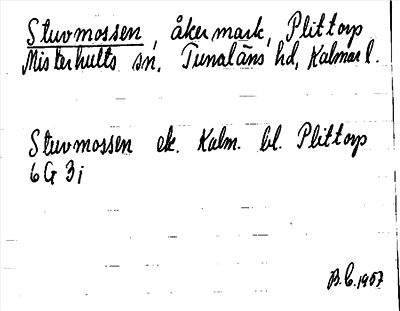 Stuvmossen, åkermark, Plittorp
Misterhults sn, Tunaläns hd, Kalmar l.
Stuvmossen ek. Kalm. bl. Plittorp
6G 3i
B.C. 1957